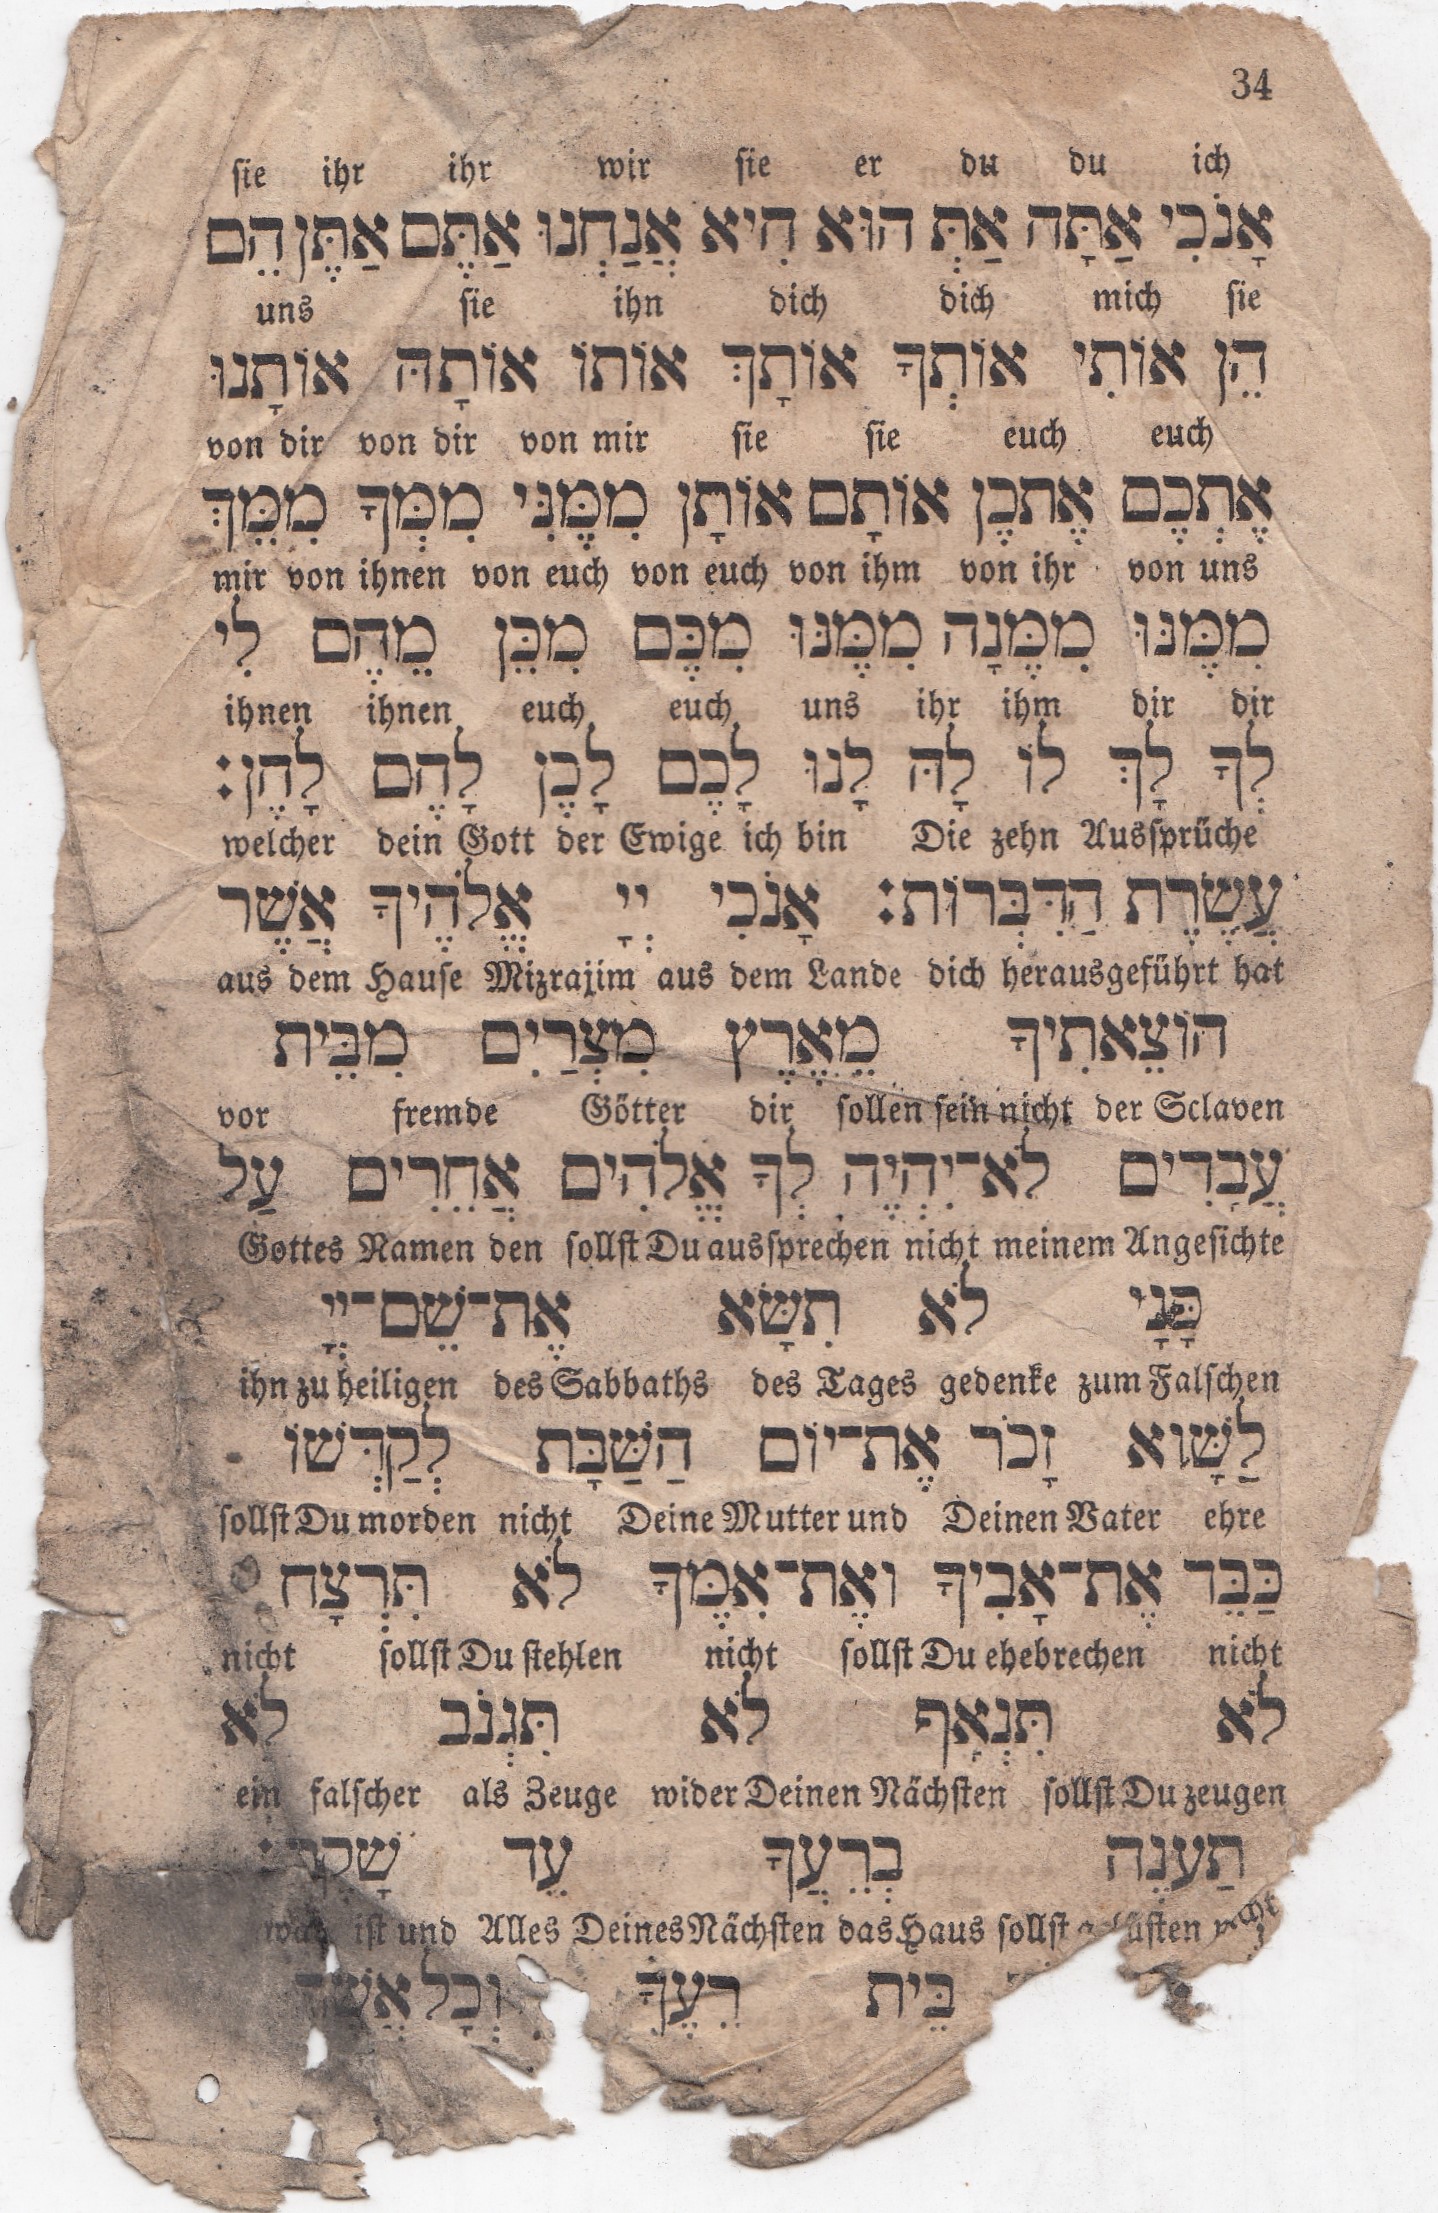 34
sie ihr ihr wir sie er du du ich
אָנֹכִי אַתָּה אַתְּ הוּא הִיא אֲנַחְנוּ אַתֶּם אַתֶּן הֵם
uns sie ihn dich dich mich sie
הֵן אוֹתִי אוֹתְךָ אוֹתָךְ אוֹתוֹ אוֹתָהּ אוֹתָנוּ
von dir von dir von mir sie sie euch euch
אֶתְכֶם אֶתְכֶן אוֹתָם אוֹתָן מִמֶּנִּי מִמְּךָ מִמֵּךְ
mir von ihnen von euch von euch von ihm von ihr von uns
מִמֶּנּוּ מִמֶּנָה מִמֶּנּוּ מִכֶּם מִכֵּן מֵהֶם לִי
ihnen ihnen euch euch uns ihr ihm dir dir
לְךָ לָךְ לוֹ לָהּ לָנוּ לָכֶם לָכֶן לָהֶם לָהֶן:
welcher dein Gott der Ewige ich bin Die zehn Aussprüche
עֲשֶׂרֶת הַדִּבְּרוֹת: אָנֹכִי יְיָ אֱלֹהֶיךָ אֲשֶׁר
aus dem Hause Mizrajim aus dem Lande dich herausgeführt hat
הוֹצֵאתִיךָ מֵאֶרֶץ מִצְרַיִם מִבֵּית
vor fremde Götter dir sollen sein nicht der Sclaven
עֲבָדִים לֹא־יִהְיֶה לְךָ אֱלֹהִים אֲחֵרִים עַל
Gottes Namen den sollst Du aussprechen nicht meinem Angesichte
פָּנָי לֹא תִשָּׂא אֶת־שֵׁם־יְיָ
ihn zu heiligen des Sabbaths des Tages gedenke zum Falschen
לַשָּׁוא זָכֹר אֶת־יוֹם הַשַּׁבָּת לְקַדְּשׁוֹ
sollst Du morden nicht Deine Mutter und Deinen Vater ehre
כַּבֵּד אֶת־אָבִיךָ ואֶת־אִמֶּךָ לֹא תִּרְצָח
nicht sollst Du stehlen nicht sollst Du ehebrechen nicht
לֹא תִּנְאָף לֹא תִּגְנֹב לֹא
ein falscher als Zeuge wider Deinen Nächsten sollst Du zeugen
תַעֲנֶה בְרֵעֲךָ עֵד שָׁקֶר:
was ist und Alles Deines Nächsten das Haus sollst
בֵּית רֵעֶךָ וְכָל אֲשֶׁר